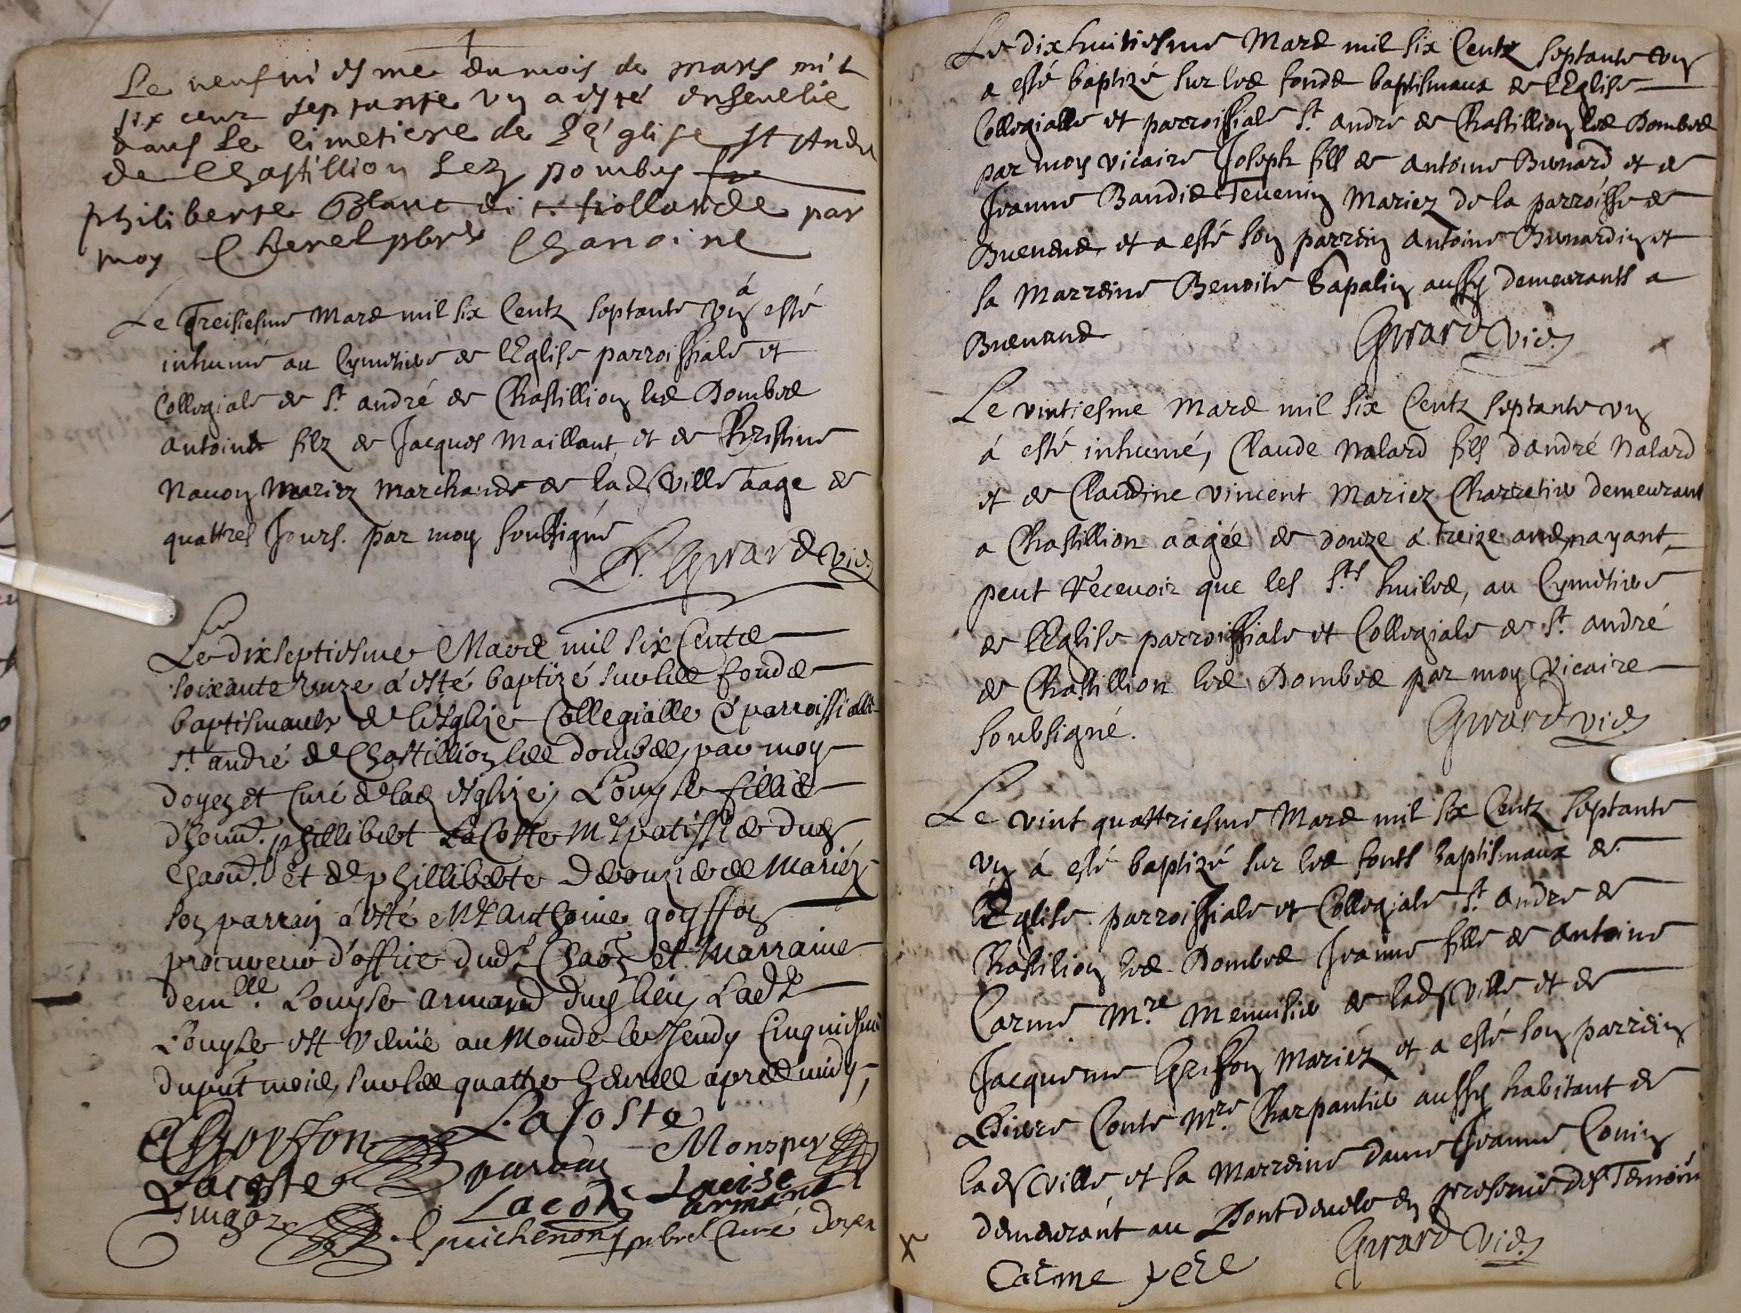 Le neufvi esme du mois de mars mil
six cent septante un a esté ensevelie
dans le cimetiere de l'église st André
de Chastillion lez dombes
philiberte Blanc dit hollande par
moy Cherel pbre Chanoine
Le Treisiesme Mars mil six Centz septante un á esté
inhumé au Cymetiere de l'Eglise parroissiale et
Collegiale de St. andré de Chastillion les Dombes
antoine filz de Jacques Maillant et de Christine
Navon Mariez Marchands de lad. Ville aage de
quattres Jours. par moy soubsigné
Girard vic.
Le dixseptiesme Mars mil six Cents
soixante unze á esté baptizé sur les fonds
baptismaulx de l'esglize Collegialle & parroissialle
St. andré de Chastillion les dombes, par moy
doyen et Curé de lad. esglize, Louyse fillie
d'honn. phillibert LaCoste Mre patissier dud.
Chaon. et de phillibete mariéz
son parrain á esté Mre anthoine goyffon
procureur d'office dud. Chaon et Marraine
demlle. Louyse armand dud. lieu, Ladte
Louyse est venüe au Monde le Jeudy Cinquiesme
du pnt mois, sur les quattre heures apres midy,
Goyffon Lacoste
Lacoste Monsper
Lacoste Louise
armand
Guichenon, pbre Curé doyen
Le dixhuitiesme Mars mil six Centz septante un
a esté baptizé sur les fonds baptismaux de l'Eglise
Collegialle et parroissiale St. andré de Chastillion les Dombes
par moy vicaire Joseph fils de antoine Bernard et de
Jeanne Baudie Tevenin Mariez de la parroisse de
Buenans, et a esté son parrein antoine Bernardin et
sa Marreine Benoite Sapalin aussy demeurants a
Buenans Girard vic.
Le vintiesme Mars mil six Centz septante un
á esté inhumé, Claude Nalard fils d'andré Nalard
et de Claudine vincent Mariez Charretier demeurant
a Chastillion aagée de douze á treize ans nayant
peut recevoir que les Sts. huiles, au Cymetiere
de l'Eglise parroissiale et Collegiale de St. andré
de Chastillion les Dombes par moy Vicaire
soubsigné. Girard vic.
Le vint quattriesme Mars mil six Centz septante
un á esté baptizé sur les fonts baptismaux de
l'Eglise parroissiale et Collegiale St. andre de
Chastilion les Dombes Jeanne fille de antoine
Carme Mre. Menuisier de lad. ville et de
Jacqueme Griffon Mariéz et a esté son parrein
Pierre Conte Mre. Charpantier aussy habitant de
lad. ville et la Marreine dame Jeanne Conin
demeurant au Pontdevele en presence des Temoins
Carme pere Girard Vic.